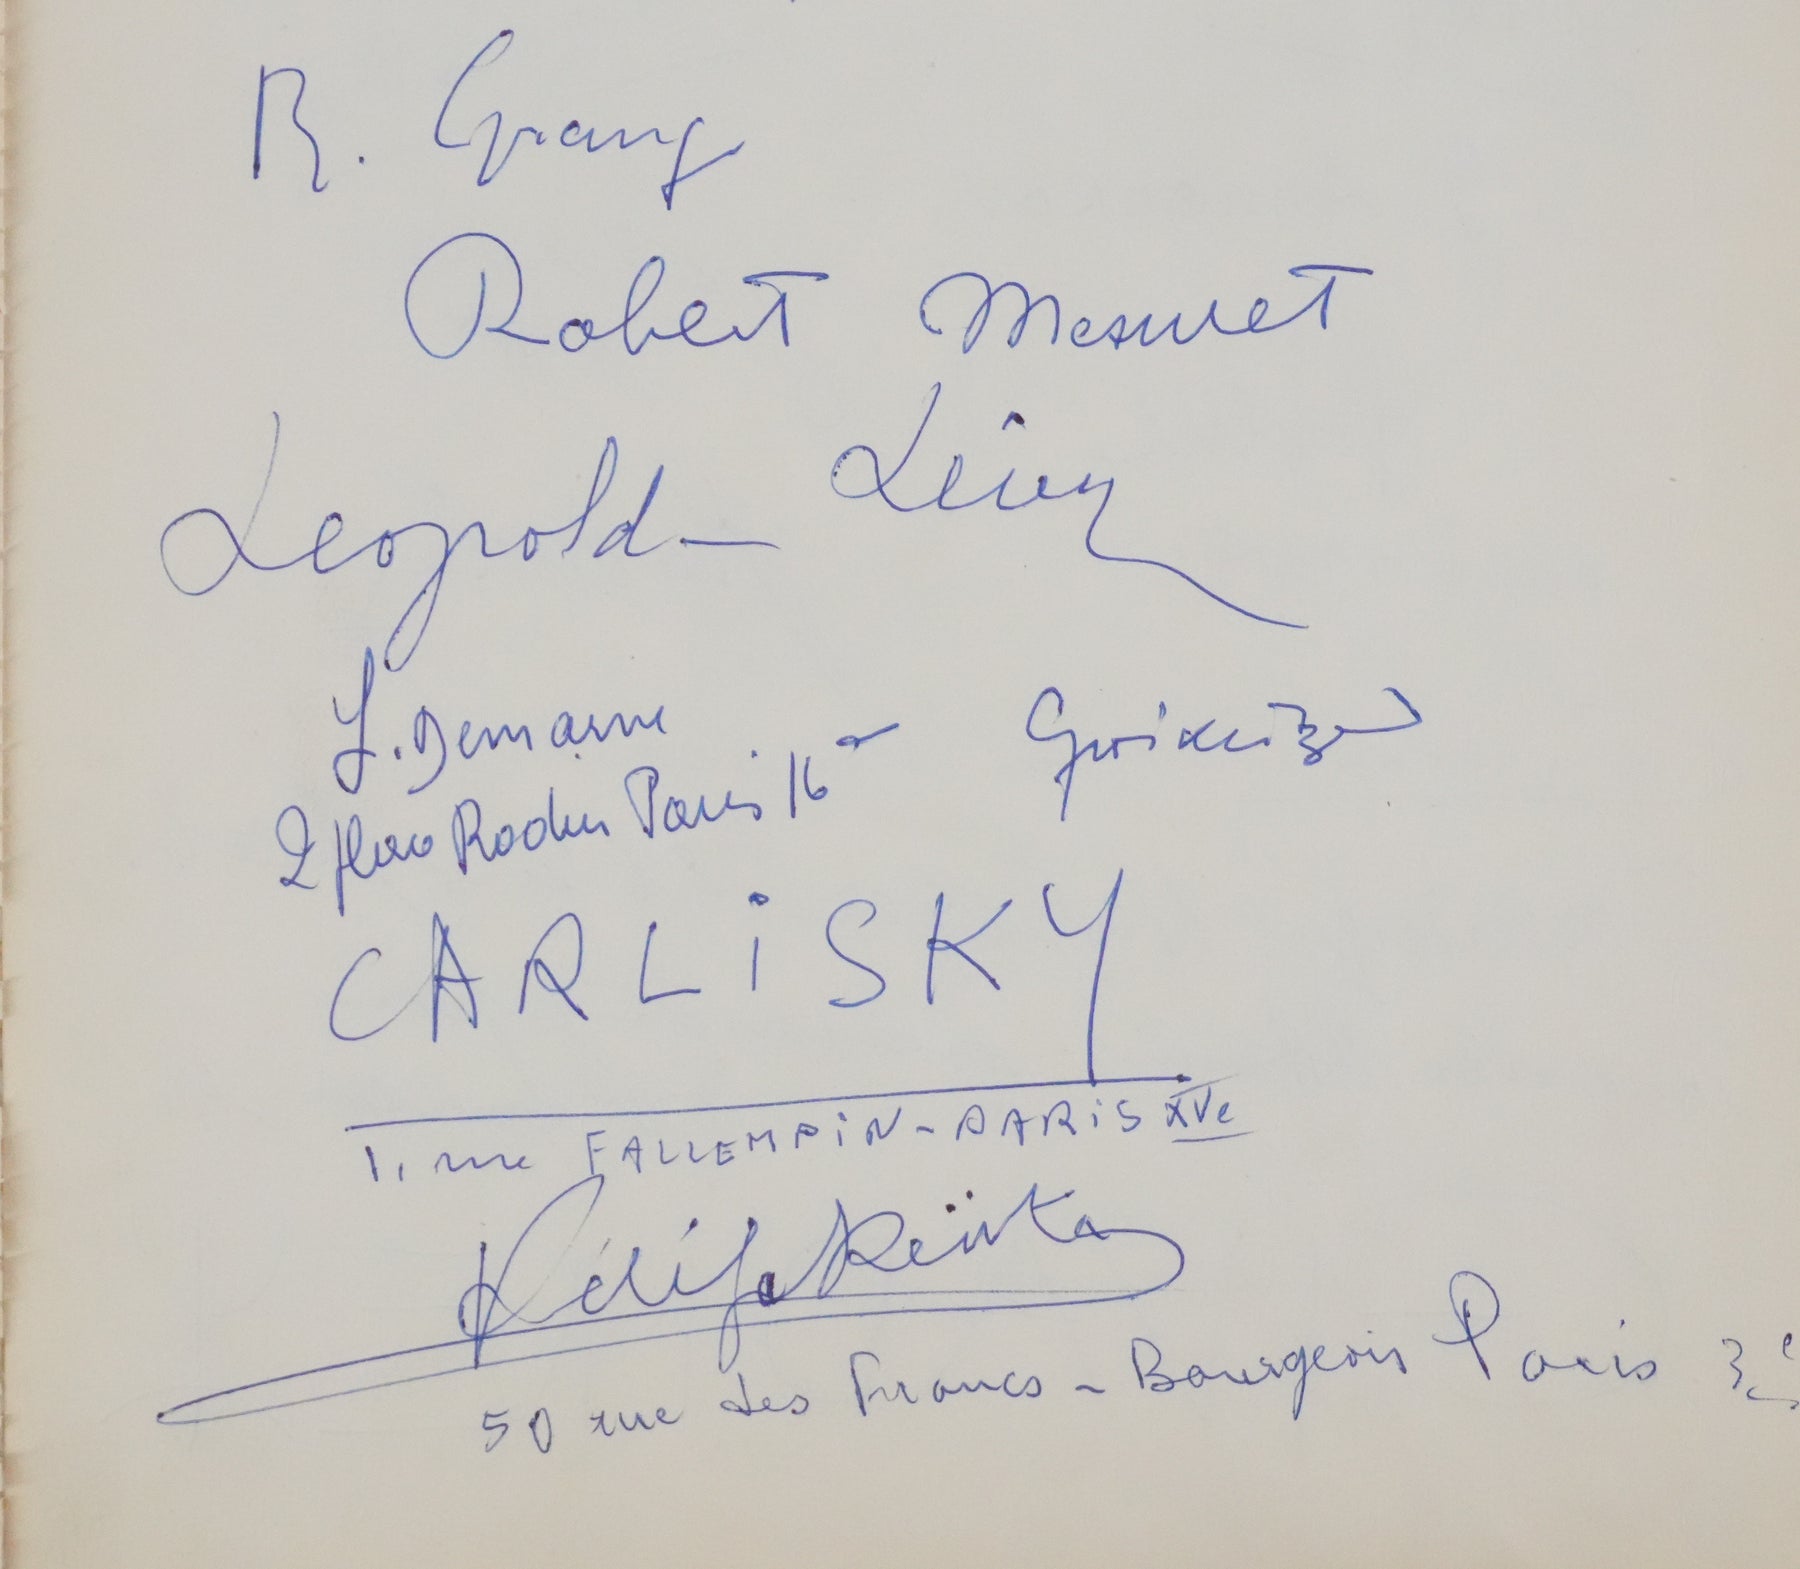 R. Grang
Robert Mesuret
Leopold-Lévy
J. Demarne
2 Place Rodin Paris 16
CARLiSKY
1, rue FALLEMPiN-PARiS XVe
50 rue des Francs-Bourgeois Paris 3e